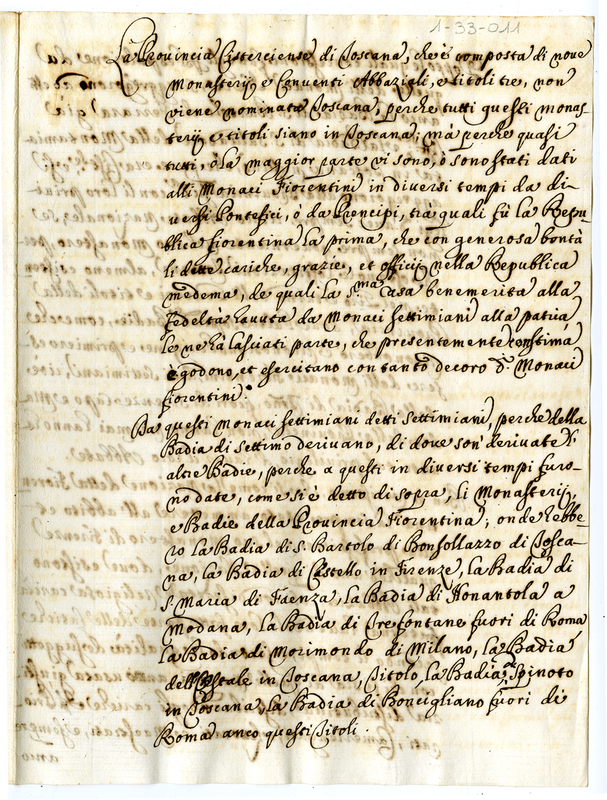 1-33-011
La Provincia Cisterciense di Toscana, che è composta di nove
Monasterij e Conventi Abbaziali, e titoli tre, non
viene nominata Toscana, perche tutti questi monas-
terij e titoli siano in Toscana; mà perche quasi
tutti, ò la maggior parte vi sono, ò sono stati dati
alli Monaci Fiorentini in diversi tempi da di-
versi Pontefici, ò da Prencipi, trà quali fù la Repu-
blica fiorentina la prima, che con generosa bontà
li dette cariche, grazie, et officij nella Republica
medema, de quali la S.ma Casa benemerita alla
Fedeltà havuta da Monaci settimiani alla patria
le ne hà lasciati parte, che presentemente con stima
godono, et esercitano con tanto decoro d. Monaci
fiorentini.
Da questi Monaci settimiani detti settimiani, perche della
Badia di settimo derivano, di dove son' derivate
altre Badie, perche a questi in diversi tempi furo-
no date, come si è detto di sopra, li Monasterij,
e Badie della Provincia Fiorentina; onde hebbe-
ro la Badia di S. Bartolo di Bonsollazzo di Tosca-
na, la Badia di Cestello in Firenze, la Badia di
S. Maria di Faenza, la Badia di Nonantola a
Modana, la Badia di Tre fontane fuori di Roma
la Badia di Morimondo di Milano, la Badia
in Toscana, Titolo, la Badia Spinoto
in Toscana, la Badia di Boncigliano fuori di
Roma anco questi Titoli.